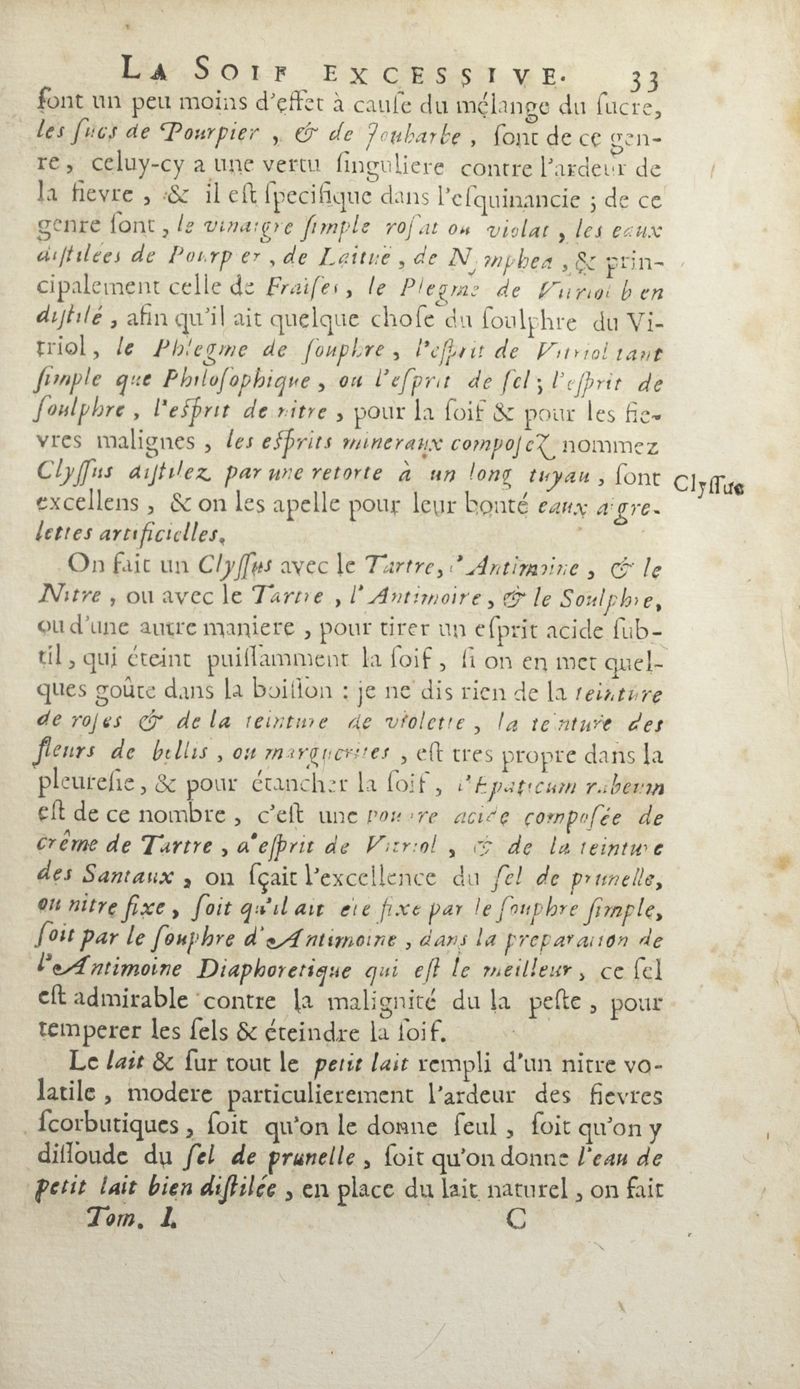 LA SOIF EXCESSIVE. 33
ſont un peu moins d'effet à cauſe du mélange du ſucre,
les ſucs de Pourpier, & de Joubarbe, ſont de ce gen-
re, celuy-cy a une vertu ſinguliere contre l'ardeur de
la fievre, & il eſt ſpecifique dans l'eſquinancie ; de ce
genre ſont, le vinaigre ſimple roſat ou violat, les eaux
diſtilées de Pourpier, de Laituë, de Nymphea, & prin-
cipalement celle de Fraiſes, le Plegme de Vitriol bien
diſtilé, afin qu'il ait quelque choſe du ſoulphre du Vi-
triol, le Phlegme de ſouphre, l'eſprit de Vitriol tant
ſimple que Philoſophique, ou l'eſprit de ſel ; l'eſprit de
ſoulphre, l'eſprit de nitre, pour la ſoif & pour les fie-
vres malignes, les eſprits mineraux compoſez nommez
Clyſſus diſtilez par une retorte à un long tuyau, ſont
Clyſſus
excellens, & on les apelle pour leur bonté eaux aigre-
lettes artificielles.
On fait un Clyſſus avec le Tartre, l'Antimoine, & le
Nitre, ou avec le Tartre, l'Antimoire, & le Soulphre,
ou d'une autre maniere, pour tirer un eſprit acide ſub-
til, qui éteint puiſſamment la ſoif, ſi on en met quel-
ques goûte dans la boiſſon : je ne dis rien de la teinture
de roſes & de la teinture de violette, la teinture des
fleurs de bellis, ou marguerites, eſt tres propre dans la
pleureſie, & pour étancher la ſoif, l'Epaticum rubeum
eſt de ce nombre, c'eſt une poudre acide compoſée de
crême de Tartre, d'eſprit de Vitriol, & de la teinture
des Santaux, on ſçait l'excellence du ſel de prunelle,
ou nitre fixe, ſoit qu'il ait eté fixe par le ſouphre ſimple,
ſoit par le ſouphre d'Antimoine, dans la preparation de
l'Antimoine Diaphoretique qui eſt le meilleur, ce ſel
eſt admirable contre la malignité du la peſte, pour
temperer les ſels & éteindre la ſoif.
Le lait & ſur tout le petit lait rempli d'un nitre vo-
latile, modere particulierement l'ardeur des fievres
ſcorbutiques, ſoit qu'on le donne ſeul, ſoit qu'on y
diſſoude du ſel de prunelle, ſoit qu'on donne l'eau de
petit lait bien diſtilée, en place du lait naturel, on fait
Tom. I. C